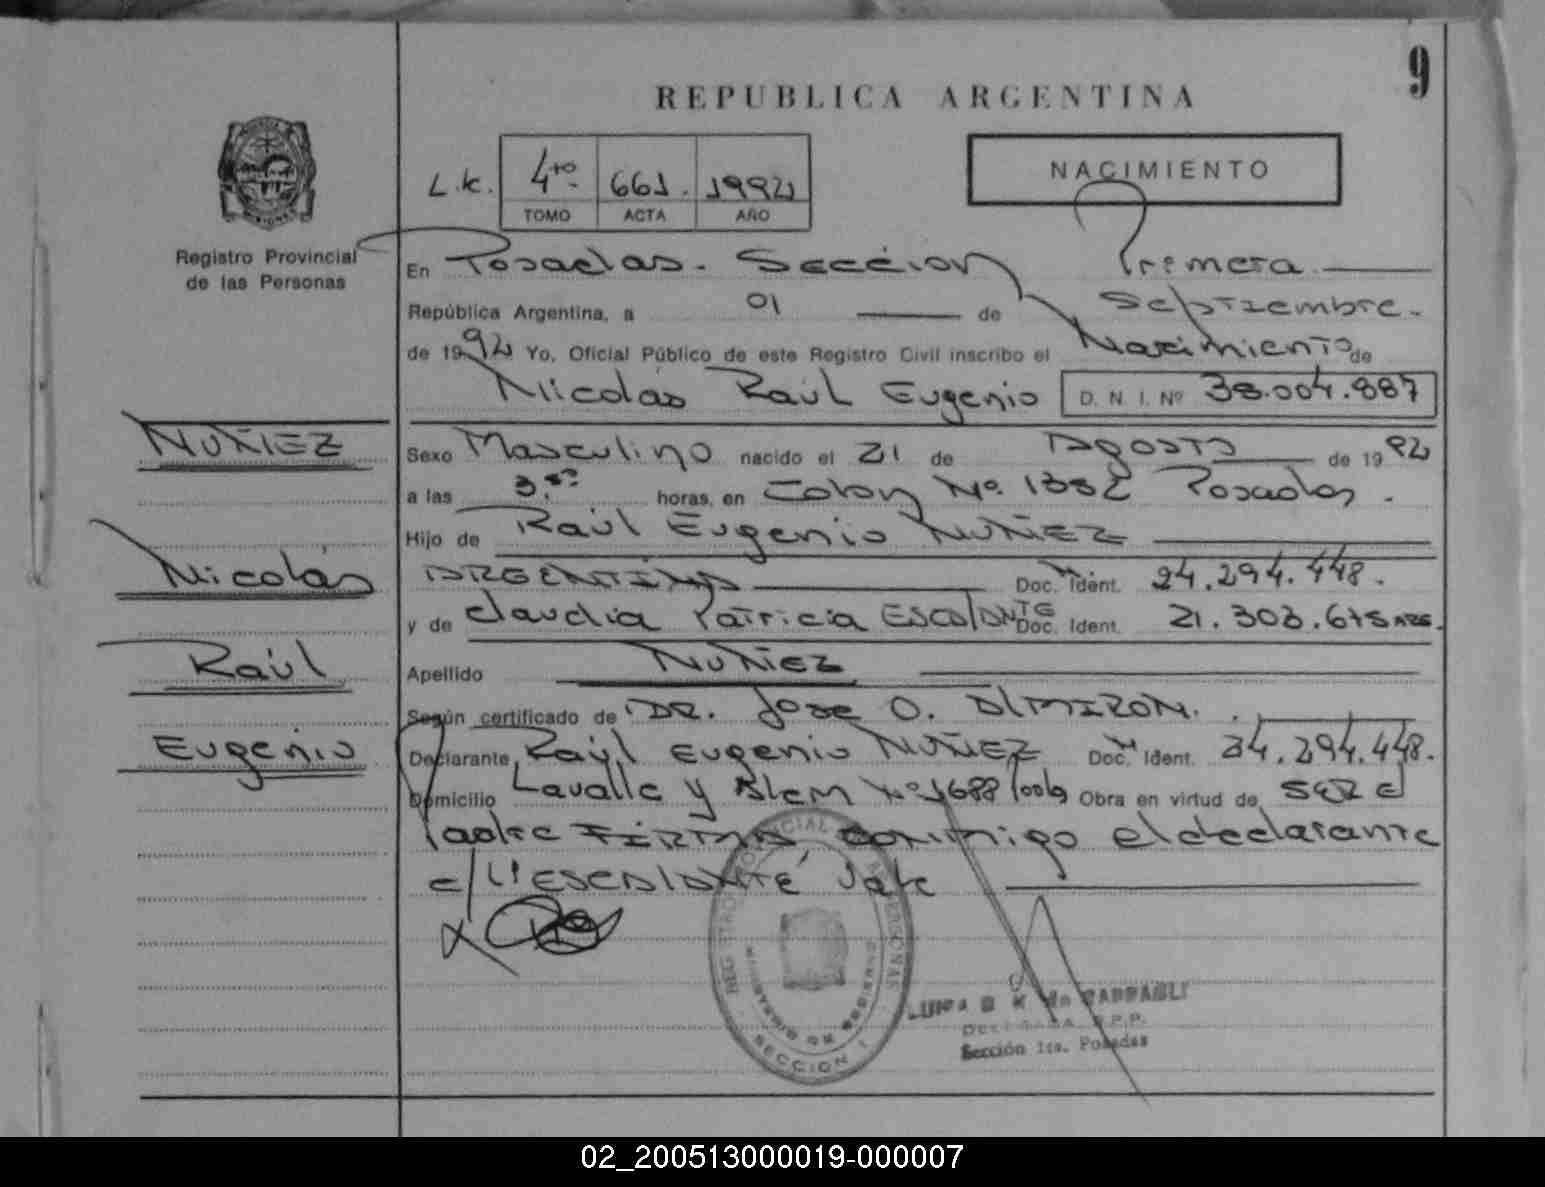 9
REPUBLICA ARGENTINA
NACIMIENTO
L.k. 4to. 661. 1992
TOMO ACTA AÑO
Registro Provincial
de las Personas
En Posadas. Sección Primera
República Argentina, a 01 de Septiembre.
de 1992 Yo, Oficial Público de este Registro Civil inscribo el Nacimiento de
Nicolás Raúl Eugenio D. N. I. Nº 38.004.887
NUÑEZ
Nicolás
Raúl
Eugenio
Sexo Masculino nacido el 21 de Agosto de 1992
a las horas, en Colon Nº. 1382 Posadas.
Hijo de Raúl Eugenio NUÑEZ
ARGENTINA Doc. Ident. 24.294.448.
y de Claudia Patricia ESCALANTE Doc. Ident. 21.303.675 ARG.
Apellido NUÑEZ
Según certificado de DR. Jose O. ALMIRON.
Declarante Raúl Eugenio NUÑEZ Doc. Ident. 24.294.448.
Domicilio Lavalle y Alem Nº 1688 Obra en virtud de SER el
padre FIRMA conmigo el declarante
ESCALANTE Vale
REGISTRO PROVINCIAL PERSONAS
SECCION 1
Sección 1ra. Posadas
02_200513000019-000007